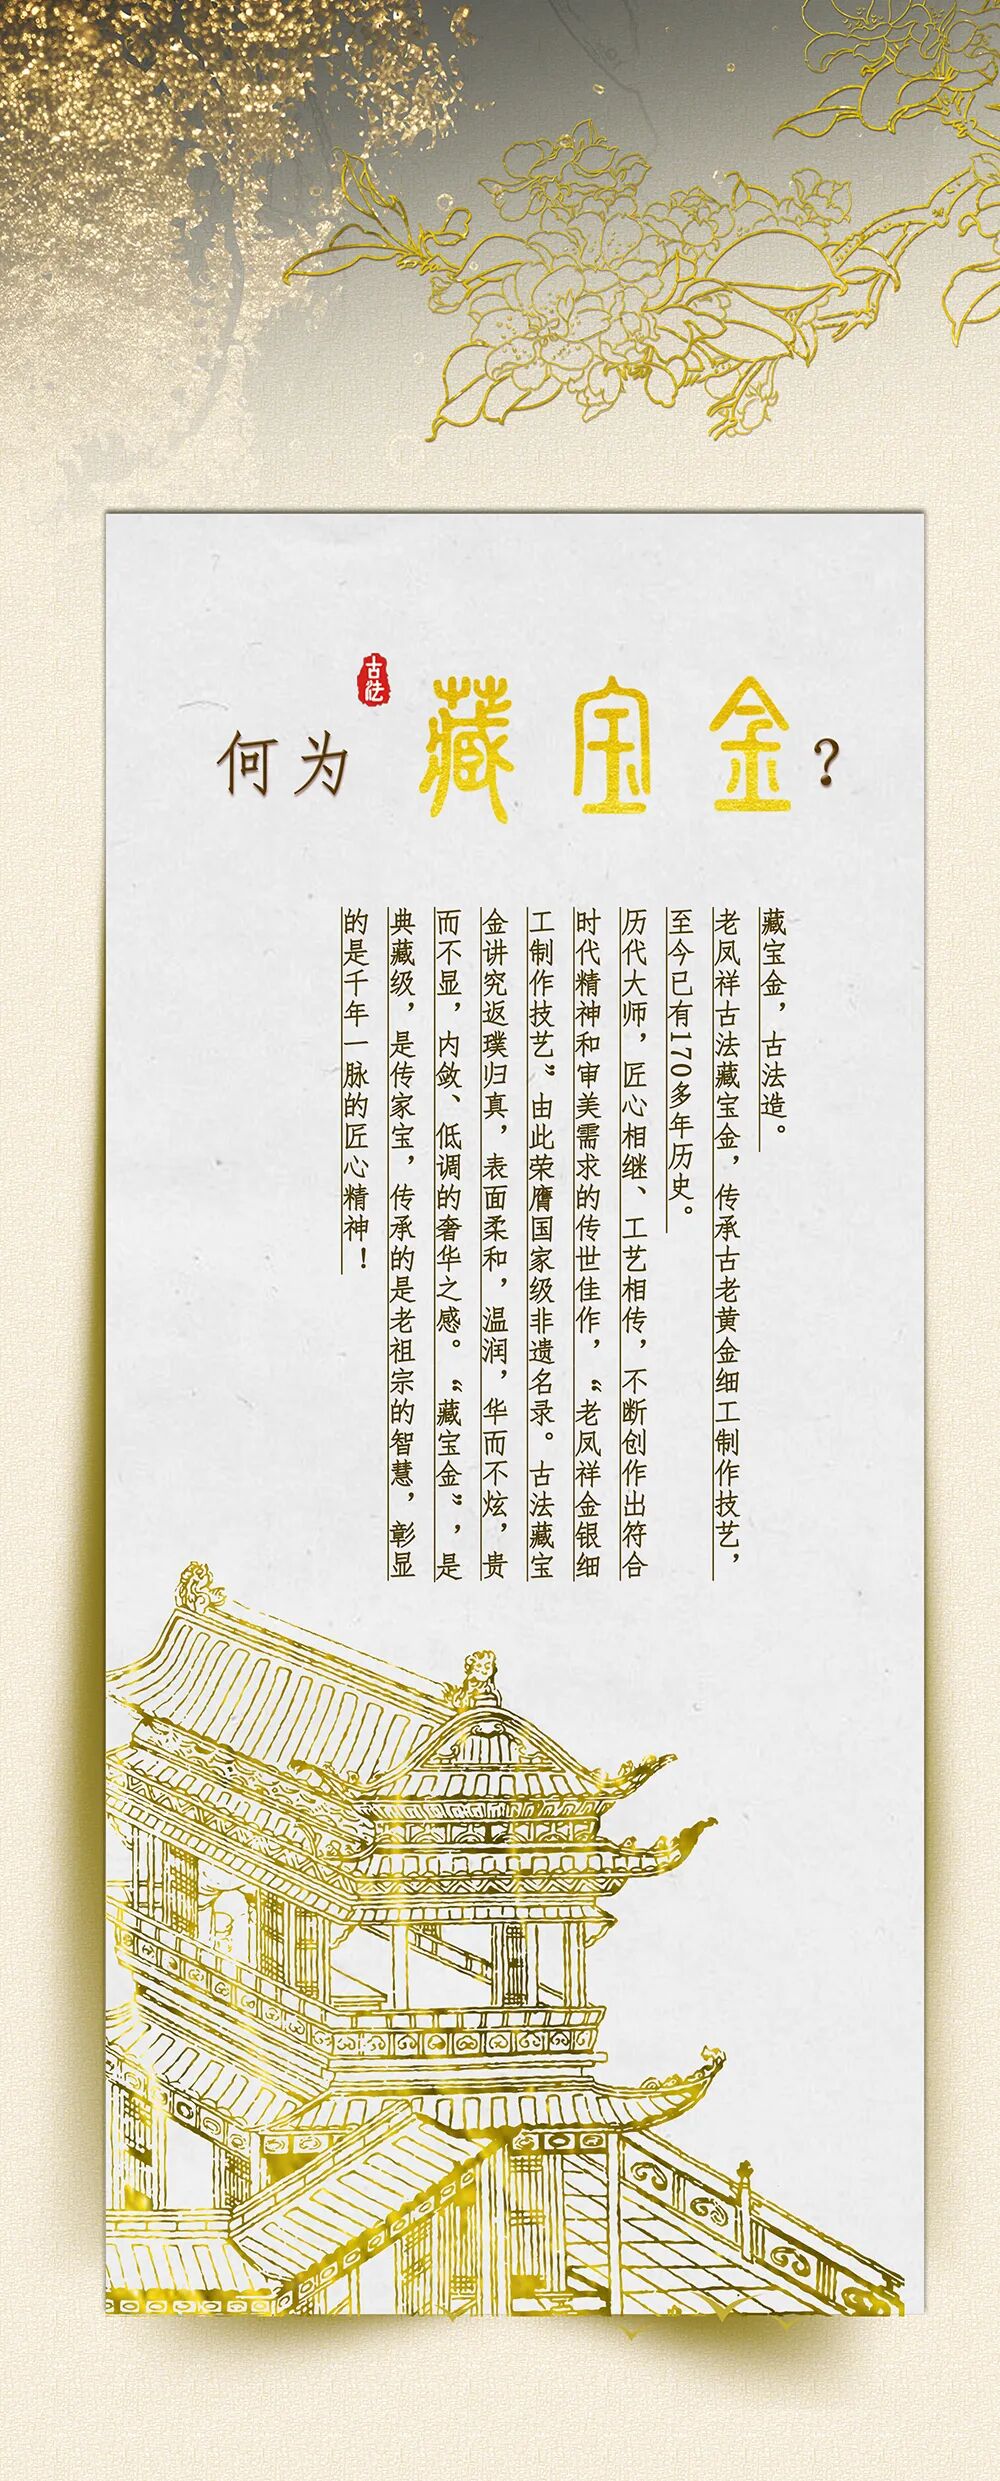 古法
何为藏宝金?
藏宝金，古法造。
老凤祥古法藏宝金，传承古老黄金细工制作技艺，
至今已有170多年历史。
历代大师，匠心相继、工艺相传，不断创作出符合
时代精神和审美需求的传世佳作，“老凤祥金银细
工制作技艺”由此荣膺国家级非遗名录。古法藏宝
金讲究返璞归真，表面柔和，温润，华而不炫，贵
而不显，内敛、低调的奢华之感。“藏宝金”，是
典藏级，是传家宝，传承的是老祖宗的智慧，彰显
的是千年一脉的匠心精神！